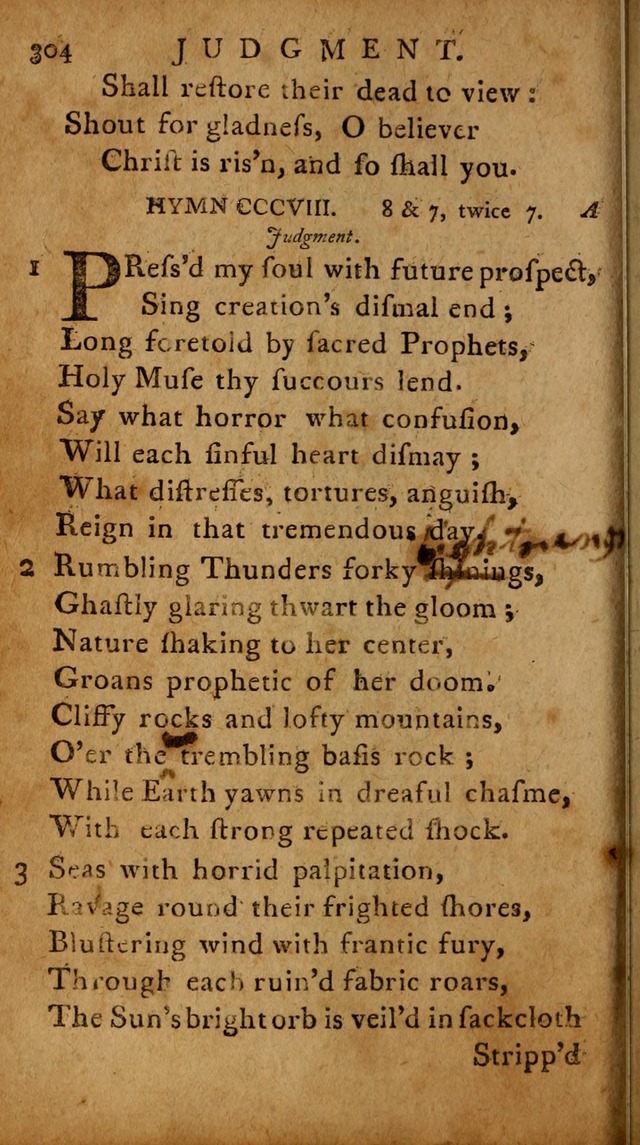 304 JUDGMENT.
Shall reſtore their dead to view :
Shout for gladneſs, O believer
Chriſt is ris’n, and ſo ſhall you.
HYMN CCCVIII. 8 & 7, twice 7. A
Judgment.
1 PReſs’d my ſoul with future proſpect,
Sing creation’s diſmal end ;
Long foretold by ſacred Prophets,
Holy Muſe thy ſuccours lend.
Say what horror what confuſion,
Will each ſinful heart diſmay ;
What diſtreſſes, tortures, anguiſh,
Reign in that tremendous day.
2 Rumbling Thunders forky
Ghaſtly glaring thwart the gloom ;
Nature ſhaking to her center,
Groans prophetic of her doom.
Cliffy rocks and lofty mountains,
O’er the trembling baſis rock ;
While Earth yawns in dreaful chaſme,
With each ſtrong repeated ſhock.
3 Seas with horrid palpitation,
Ravage round their frighted ſhores,
Bluſtering wind with frantic fury,
Through each ruin’d fabric roars,
The Sun’s bright orb is veil’d in ſackcloth
Stripp’d